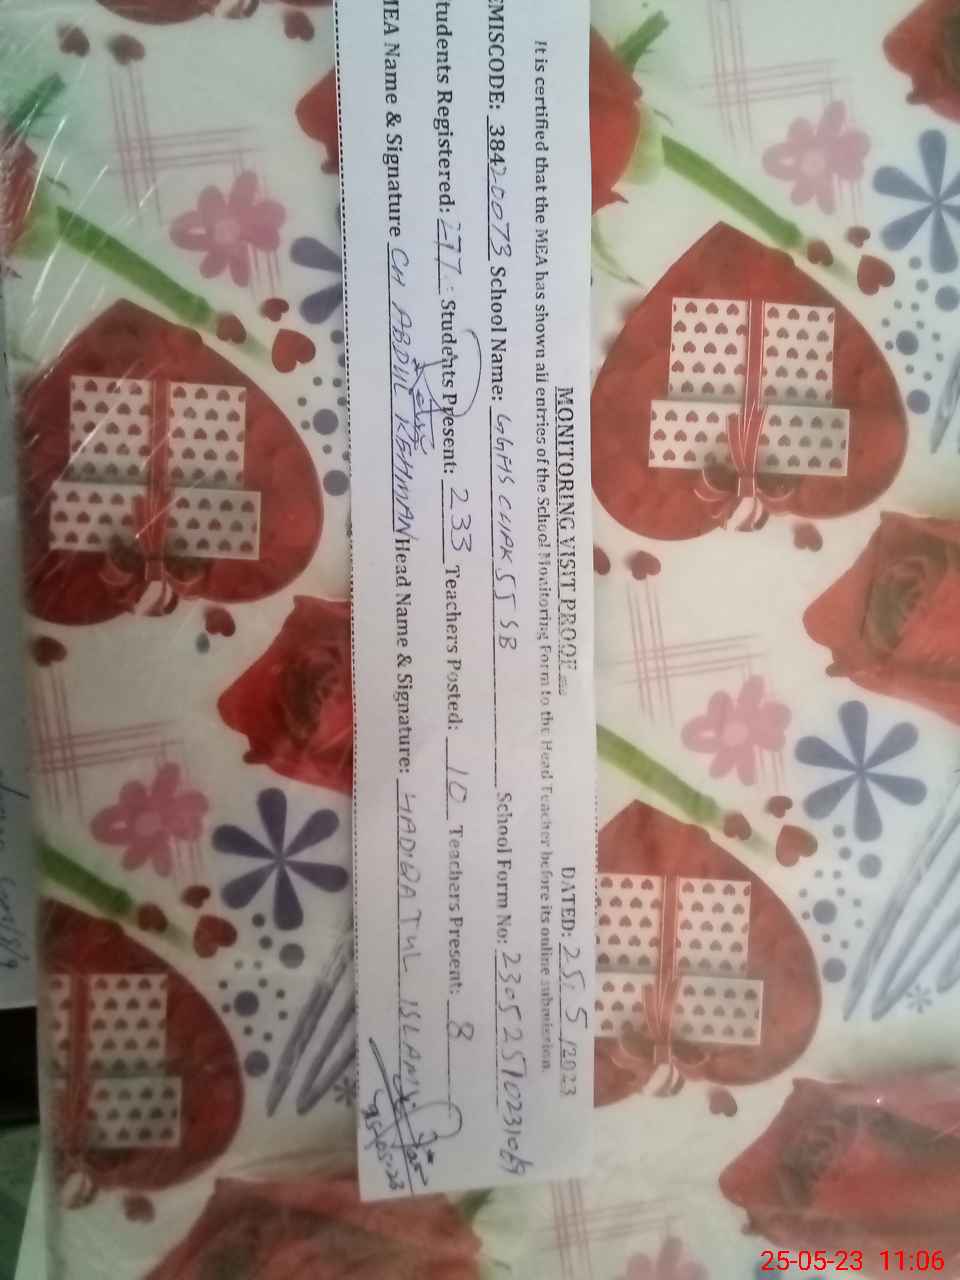 MONITORING VISIT PROOF DATED: 25, 5 /2023
It is certified that the MEA has shown all entries of the School Monitoring Form to the Head Teacher before its online submission.
EMISCODE: 38420073 School Name: GGHS CHAK 55 SB School Form No:
tudents Registered: 277 : Students Present: 233 Teachers Posted: 10 Teachers Present: 8
MEA Name & Signature CH ABDUL REHMAN Head Name & Signature: HADIQA TUL ISLAM
25-05-23 11:06